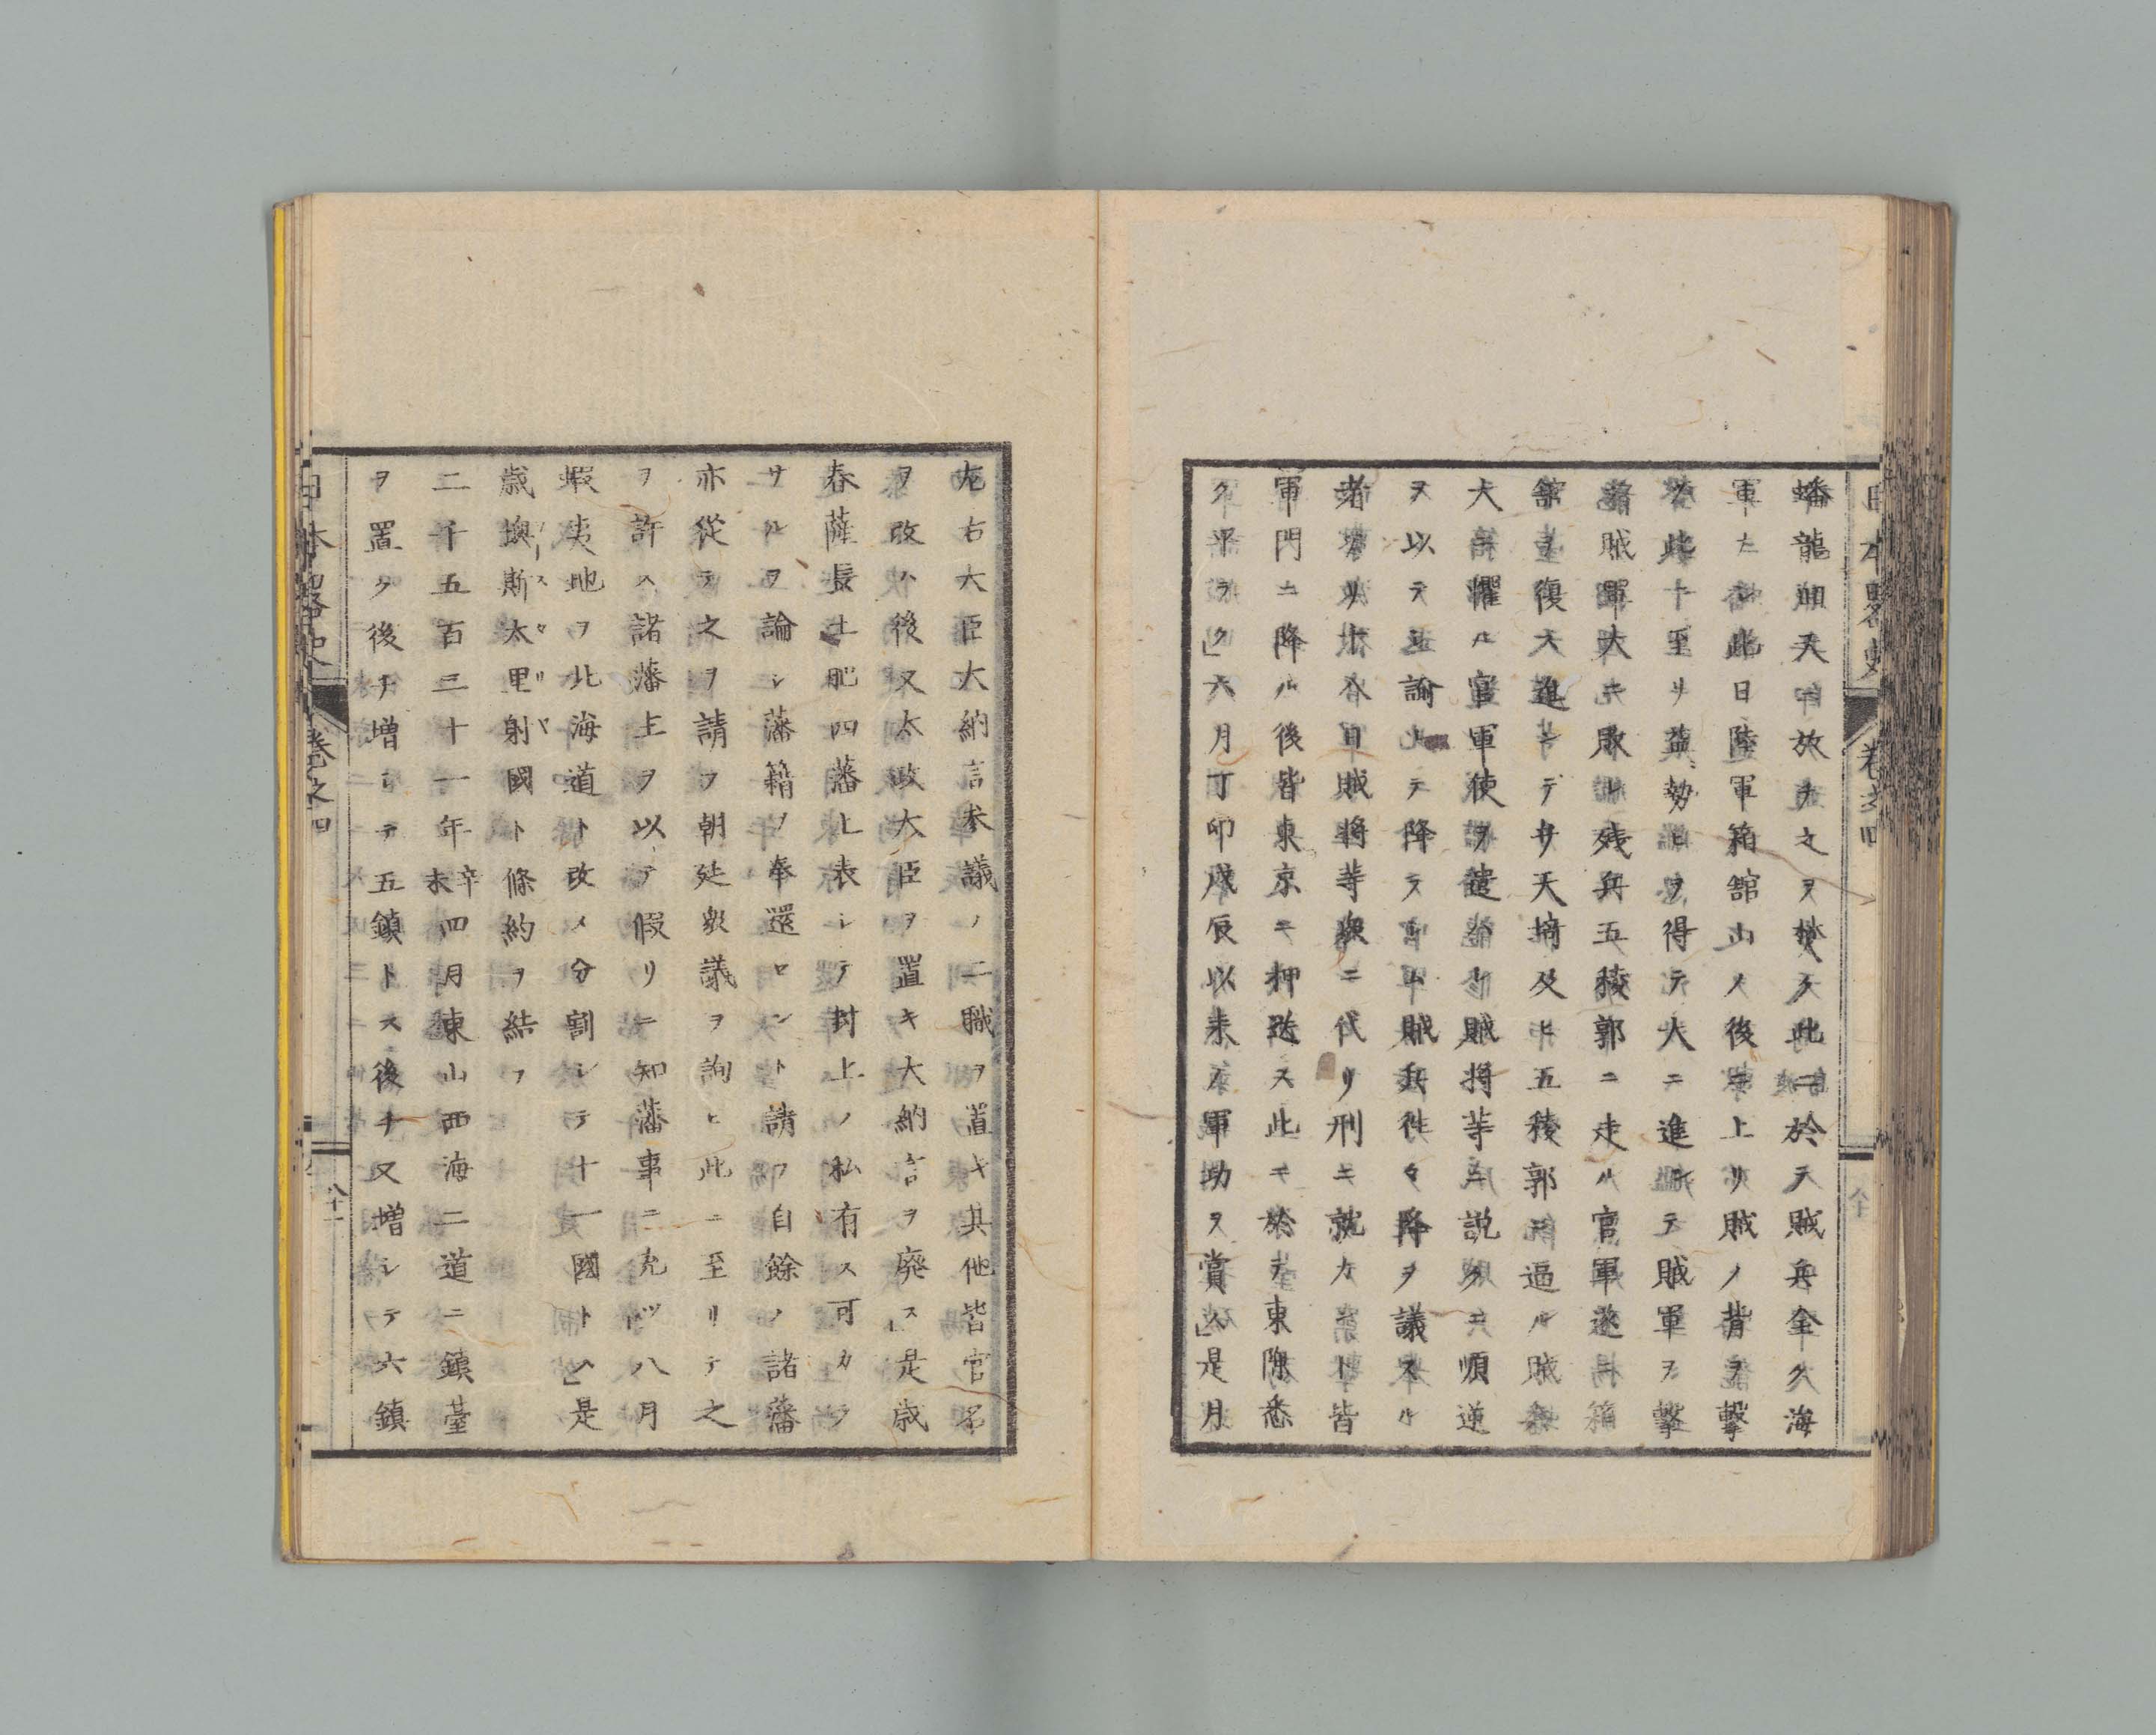 日本略史 卷之四
蟠龍火ヲ放チ之ヲ焚ク此ニ於テ賊兵全ク海
軍ナシ此日陸軍箱舘山ノ後ニ上リ賊ノ背ヲ撃
ツ此ニ至リ益勢ヒヲ得テ大ニ進ミテ賊軍ヲ撃
賊軍大ニ敗レ残兵五稜郭ニ走ル官軍遂ニ箱
舘ヲ復ス進ンデ弁天堝及ヒ五稜郭ニ逼ル賊
大ニ懼ル官軍使ヲ遣リ賊将等ニ説クニ順逆
ヲ以テシ諭シテ降ラシム賊兵徃々降ヲ議スル
者アリ十八日賊将等衆ニ代リ刑ニ就カント皆
軍門ニ降ル後皆東京ニ押送ス此ニ於テ東陲悉
ク平ラク」六月丁卯戊辰以来ノ軍功ヲ賞ス」是月
左右大臣大納言参議ノ二職ヲ置キ其他皆官名
ヲ改ム後又太政大臣ヲ置キ大納言ヲ廃ス」是歳
春薩長土肥四藩上表シテ封土ノ私有ス可カラ
サルヲ論シ藩籍ヲ奉還センヿヲ請フ自餘ノ諸藩
亦從テ之ヲ請フ朝廷衆議ヲ詢ヒ此ニ至リテ之
ヲ許ス諸藩主ヲ以テ假リニ知藩事ニ充ツ八月
蝦夷地ヲ北海道ト改メ分割シテ十一國トス」是
歳墺斯太里射國ト條約ヲ結フ
二千五百三十一年辛未四月東山西海二道ニ鎮臺
ヲ置ク後チ増シテ五鎮トス後チ又増シテ六鎮
日本略史 卷之四 八十一